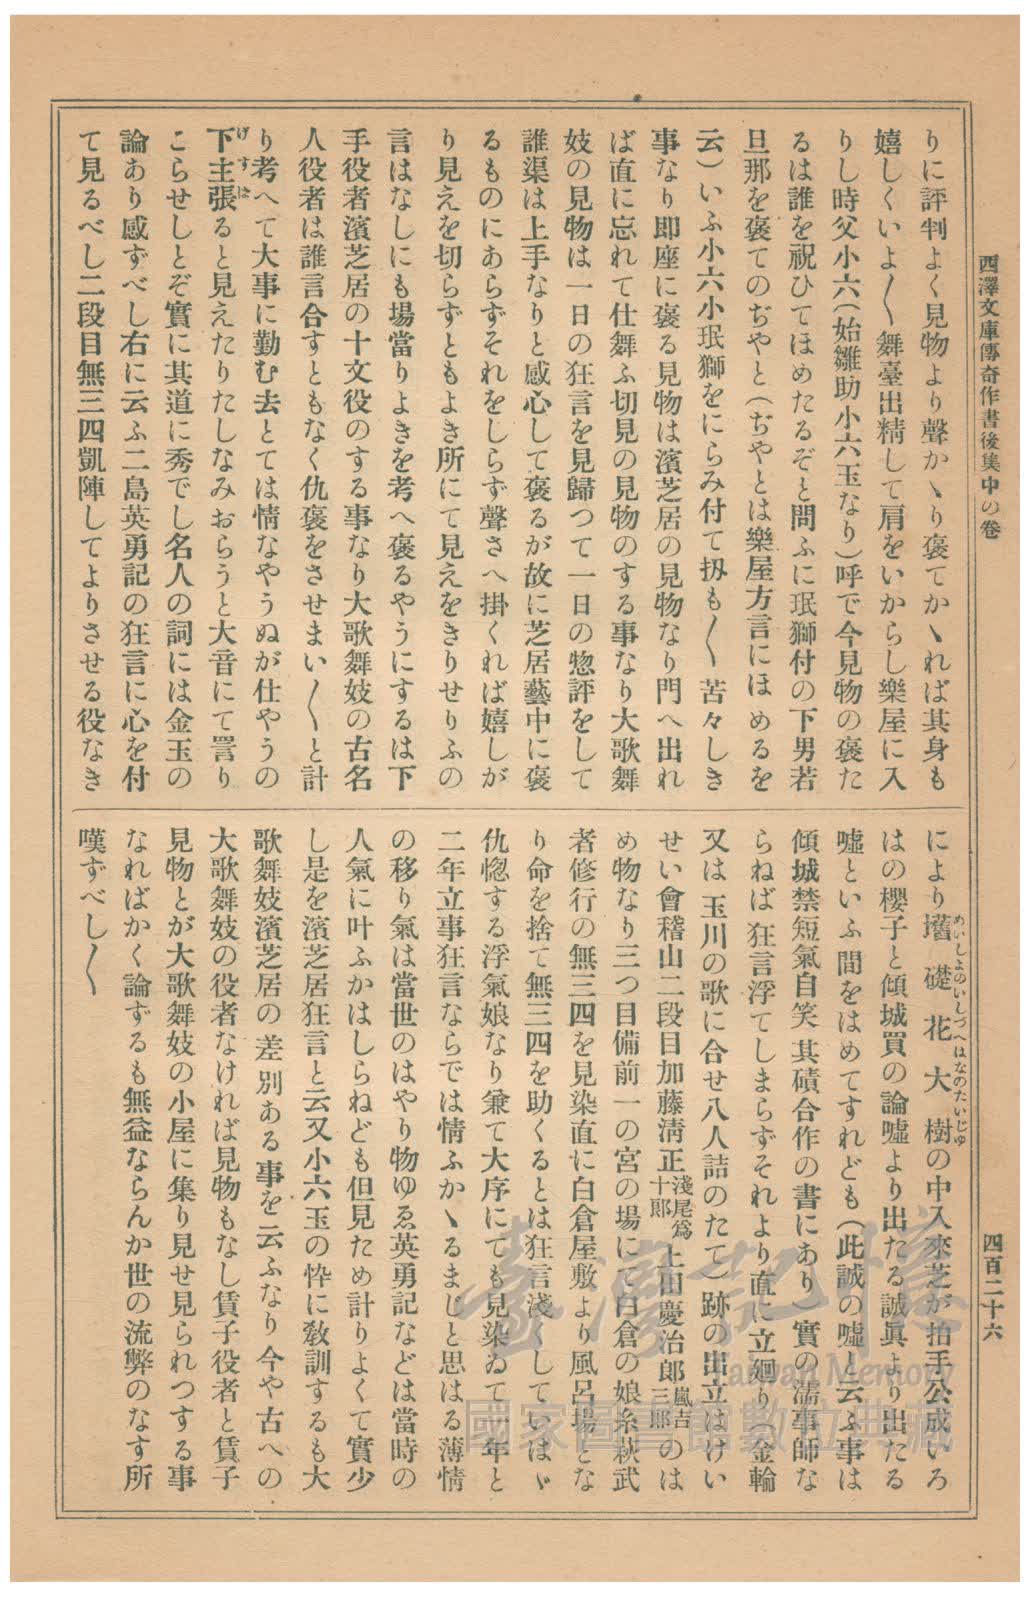 西澤文庫傳奇作書後集中の卷
四百二十六
りに評判よく見物より聲かゝり褒てかゝれば其身も
嬉しくいよ〳〵舞臺出精して肩をいからし樂屋に入
りし時父小六(始雛助小六玉なり)呼で今見物の褒た
るは誰を祝ひてほめたるぞと問ふに珉獅付の下男若
旦那を褒てのぢやと(ぢやとは樂屋方言にほめるを
云)いふ小六小珉獅をにらみ付て扨も〳〵苦々しき
事なり即座に褒る見物は濱芝居の見物なり門へ出れ
ば直に忘れて仕舞ふ切見の見物のする事なり大歌舞
妓の見物は一日の狂言を見歸つて一日の惣評をして
誰渠は上手なりと感心して褒るが故に芝居藝中に褒
るものにあらずそれをしらず聲さへ掛くれば嬉しが
り見えを切らずともよき所にて見えをきりせりふの
言はなしにも場當りよきを考へ褒るやうにするは下
手役者濱芝居の十文役のする事なり大歌舞妓の古名
人役者は誰言合すともなく仇褒をさせまい〳〵と計
り考へて大事に勤む去とては情なやうぬが仕やうの
下主張ると見えたりたしなみおらうと大音にて罵り
げすば
こらせしとぞ實に其道に秀でし名人の詞には金玉の
論あり感ずべし右に云ふ二島英勇記の狂言に心を付
て見るべし二段目無三四凱陣してよりさせる役なき
により礎花大樹の中入來芝が拍手公成いろ
めいしよのいしづへはなのたいじゆ
はの櫻子と傾城買の論噓より出たる誠眞より出たる
噓といふ間をはめてすれども(此誠の噓と云ふ事は
傾城禁短氣自笑其磧合作の書にあり)實の濡事師な
らねば狂言浮てしまらずそれより直に立廻り(金輪
又は玉川の歌に合せ八人詰のたて)跡の出立はけい
せい會稽山二段目加藤淸正淺尾爲十郞上田慶治郞嵐吉三郞のは
め物なり三つ目備前一の宮の場にて白倉の娘糸萩武
者修行の無三四を見染直に白倉屋敷より風呂場とな
り命を捨て無三四を助くるとは狂言淺くしていはゞ
仇惚する浮氣娘なり兼て大序にても見染ゐて一年と
二年立事狂言ならでは情ふかゝるまじと思はる薄情
の移り氣は當世のはやり物ゆゑ英勇記などは當時の
人氣に叶ふかはしらねども但見ため計りよくて實少
し是を濱芝居狂言と云又小六玉の忰に敎訓するも大
歌舞妓濱芝居の差別ある事を云ふなり今や古への
大歌舞妓の役者なければ見物もなし賃子役者と賃子
見物とが大歌舞妓の小屋に集り見せ見られつする事
なればかく論ずるも無益ならんか世の流弊のなす所
嘆ずべし〳〵
臺灣記憶
Taiwan Memory
國家圖書館數位典藏